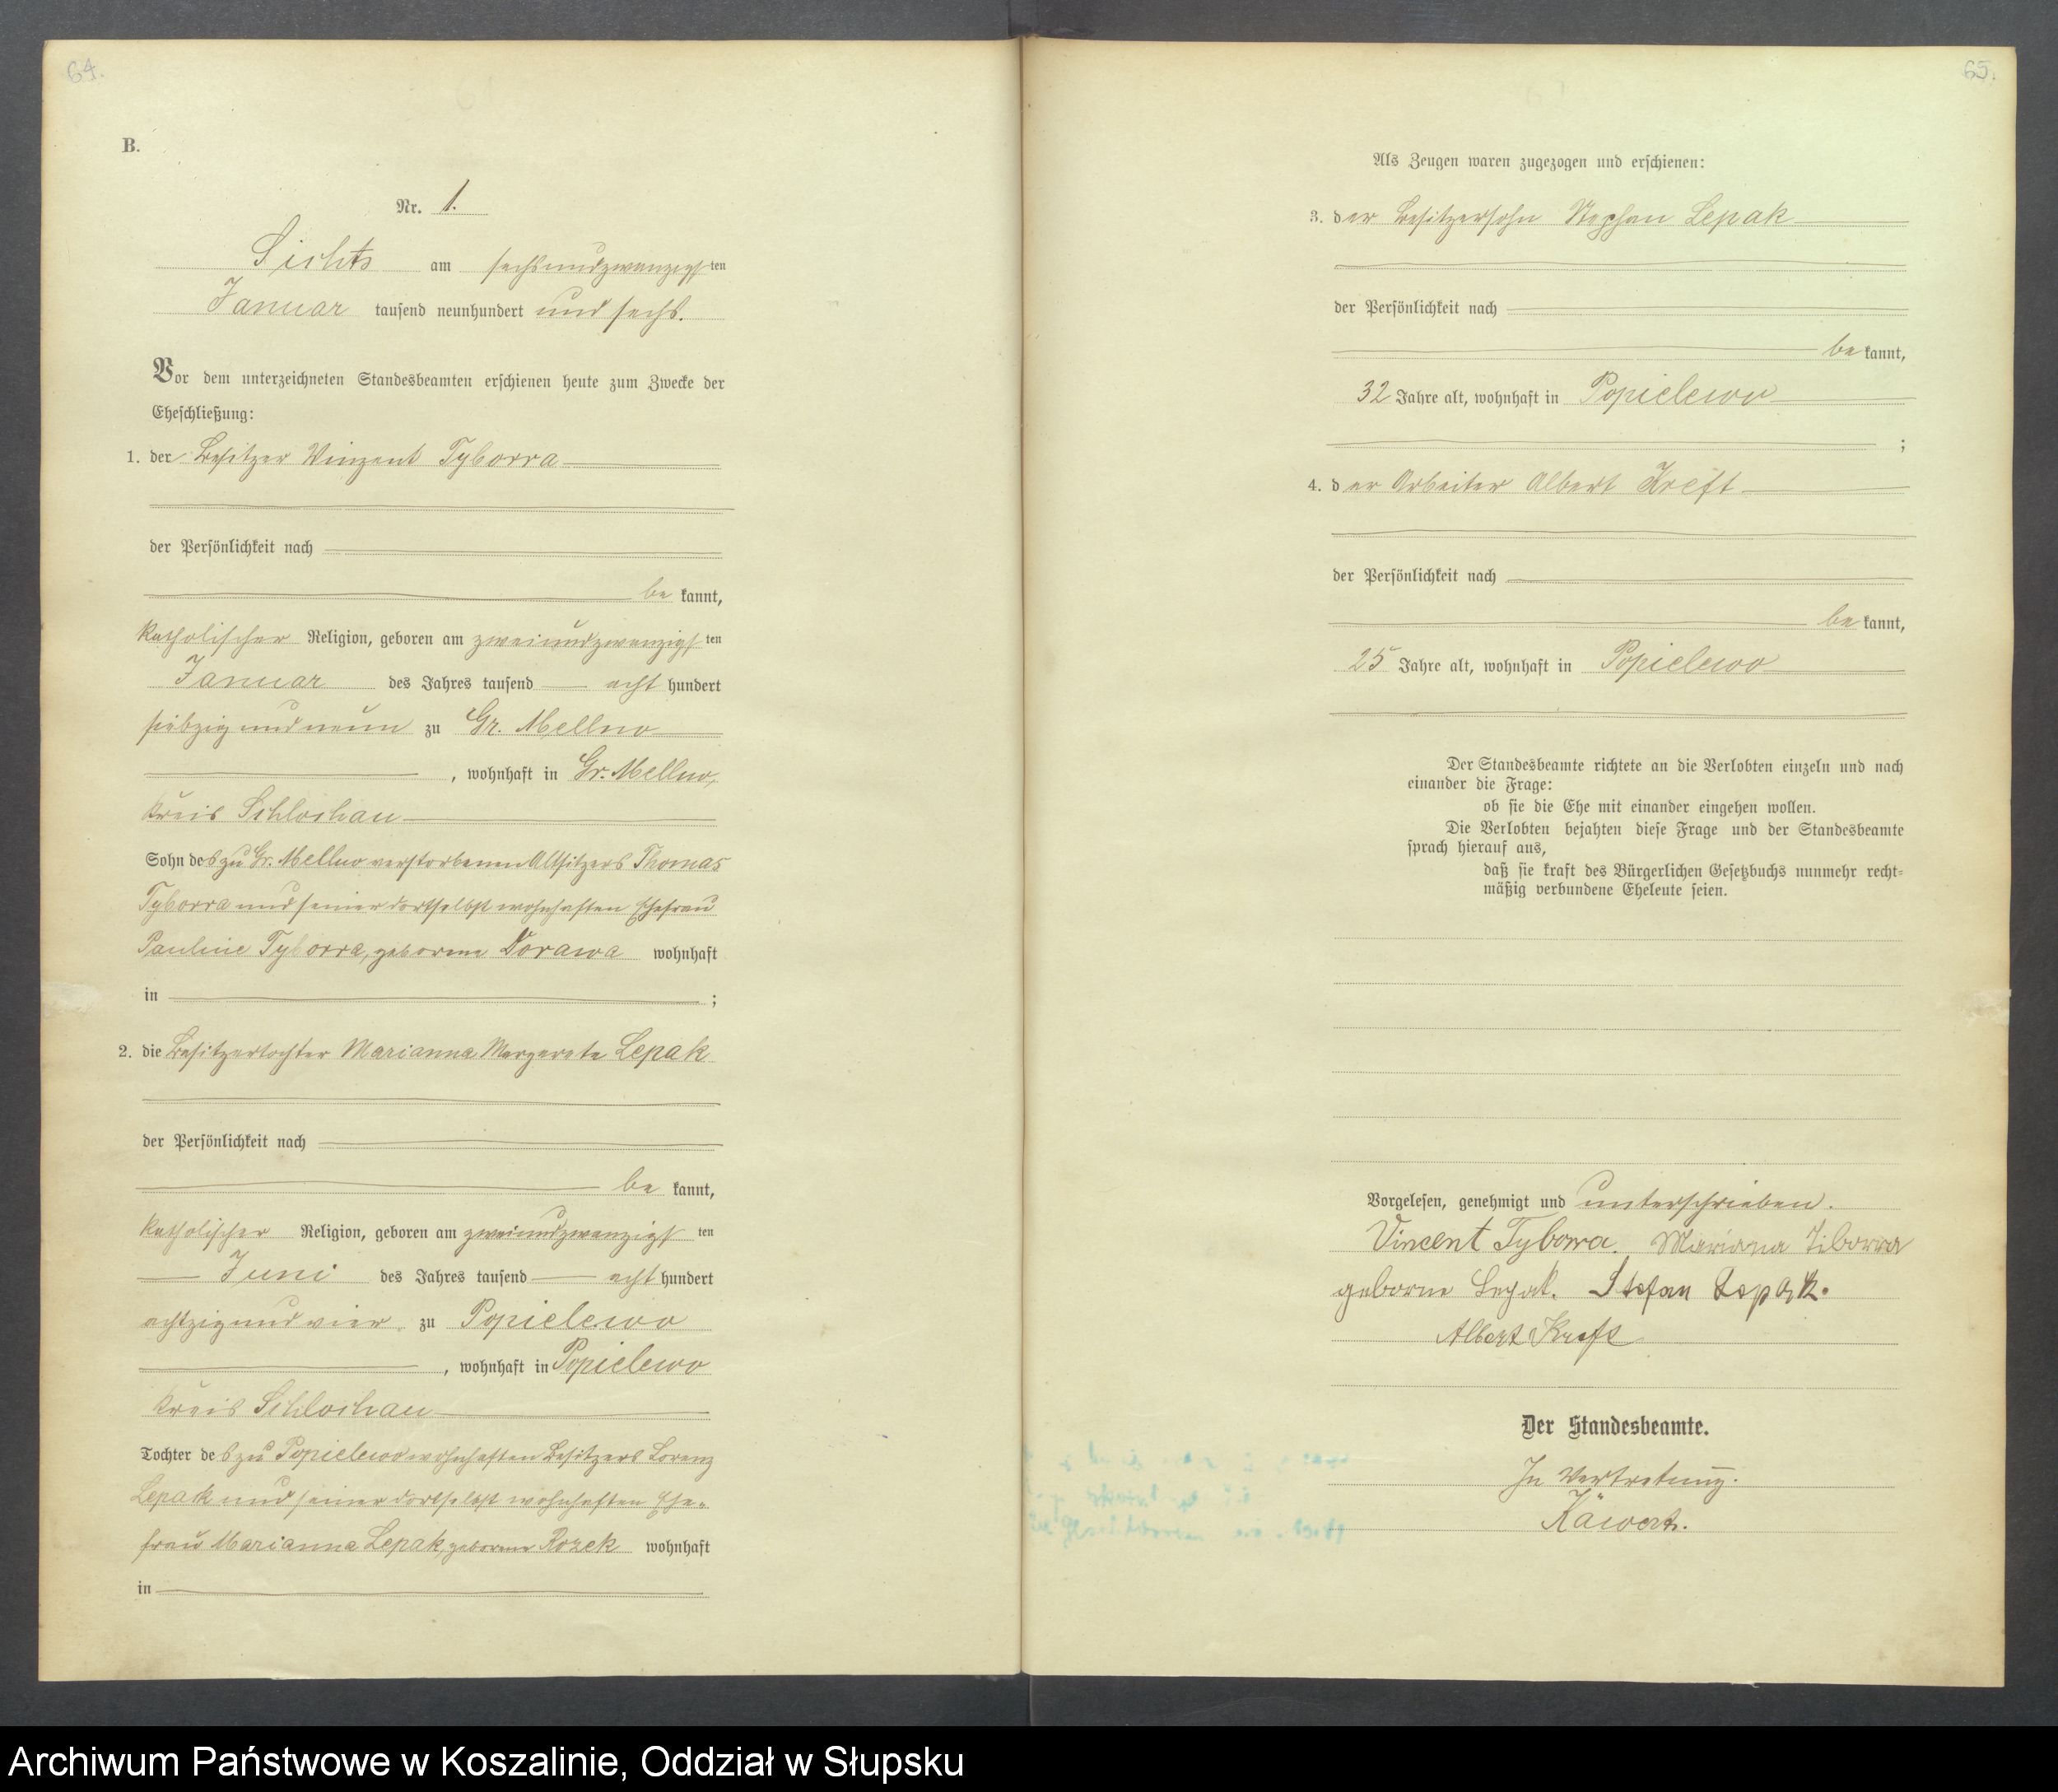 64.
B.
Nr. 1.
Sichts am sechsundzwanzigsten
Januar tausend neunhundert und sechs.
Vor dem unterzeichneten Standesbeamten erschienen heute zum Zwecke der
Eheschließung:
1. der Besitzer Vinzent Tyborra
der Persönlichkeit nach
be kannt,
katholischer Religion, geboren am zweiundzwanzigsten
Januar des Jahres tausend acht hundert
siebzig und neun zu Gr. Mellno
, wohnhaft in Gr. Mellno,
Kreis Schlochau
Sohn des zu Gr. Mellno verstorbenen Altsitzers Thomas
Tyborra und seiner dortselbst wohnhaften Ehefrau
Pauline Tyborra, geborene Dorawa wohnhaft
in ;
2. die Besitzertochter Marianna Margarete Lepak
der Persönlichkeit nach
be kannt,
katholischer Religion, geboren am zweiundzwanzigsten
Juni des Jahres tausend acht hundert
achtzig und vier zu Popielewo
, wohnhaft in Popielewo
Kreis Schlochau
Tochter des zu Popielewo wohnhaften Besitzers Lorenz
Lepak und seiner dortselbst wohnhaften Ehe-
frau Marianna Lepak, geborene Rozek wohnhaft
in
65.
Als Zeugen waren zugezogen und erschienen:
3. der Besitzersohn Stephan Lepak
der Persönlichkeit nach
be kannt,
32 Jahre alt, wohnhaft in Popielewo
;
4. der Arbeiter Albert Kreft
der Persönlichkeit nach
be kannt,
25 Jahre alt, wohnhaft in Popielewo
Der Standesbeamte richtete an die Verlobten einzeln und nach
einander die Frage:
ob sie die Ehe mit einander eingehen wollen.
Die Verlobten bejahten diese Frage und der Standesbeamte
sprach hierauf aus,
daß sie kraft des Bürgerlichen Gesetzbuchs nunmehr recht-
mäßig verbundene Eheleute seien.
Vorgelesen, genehmigt und unterschrieben.
Vincent Tyborra. Mariana Tiborra
geborne Lepak. Stefan Lepak.
Albert Kreft
Der Standesbeamte.
In Vertretung.
Archiwum Państwowe w Koszalinie, Oddział w Słupsku